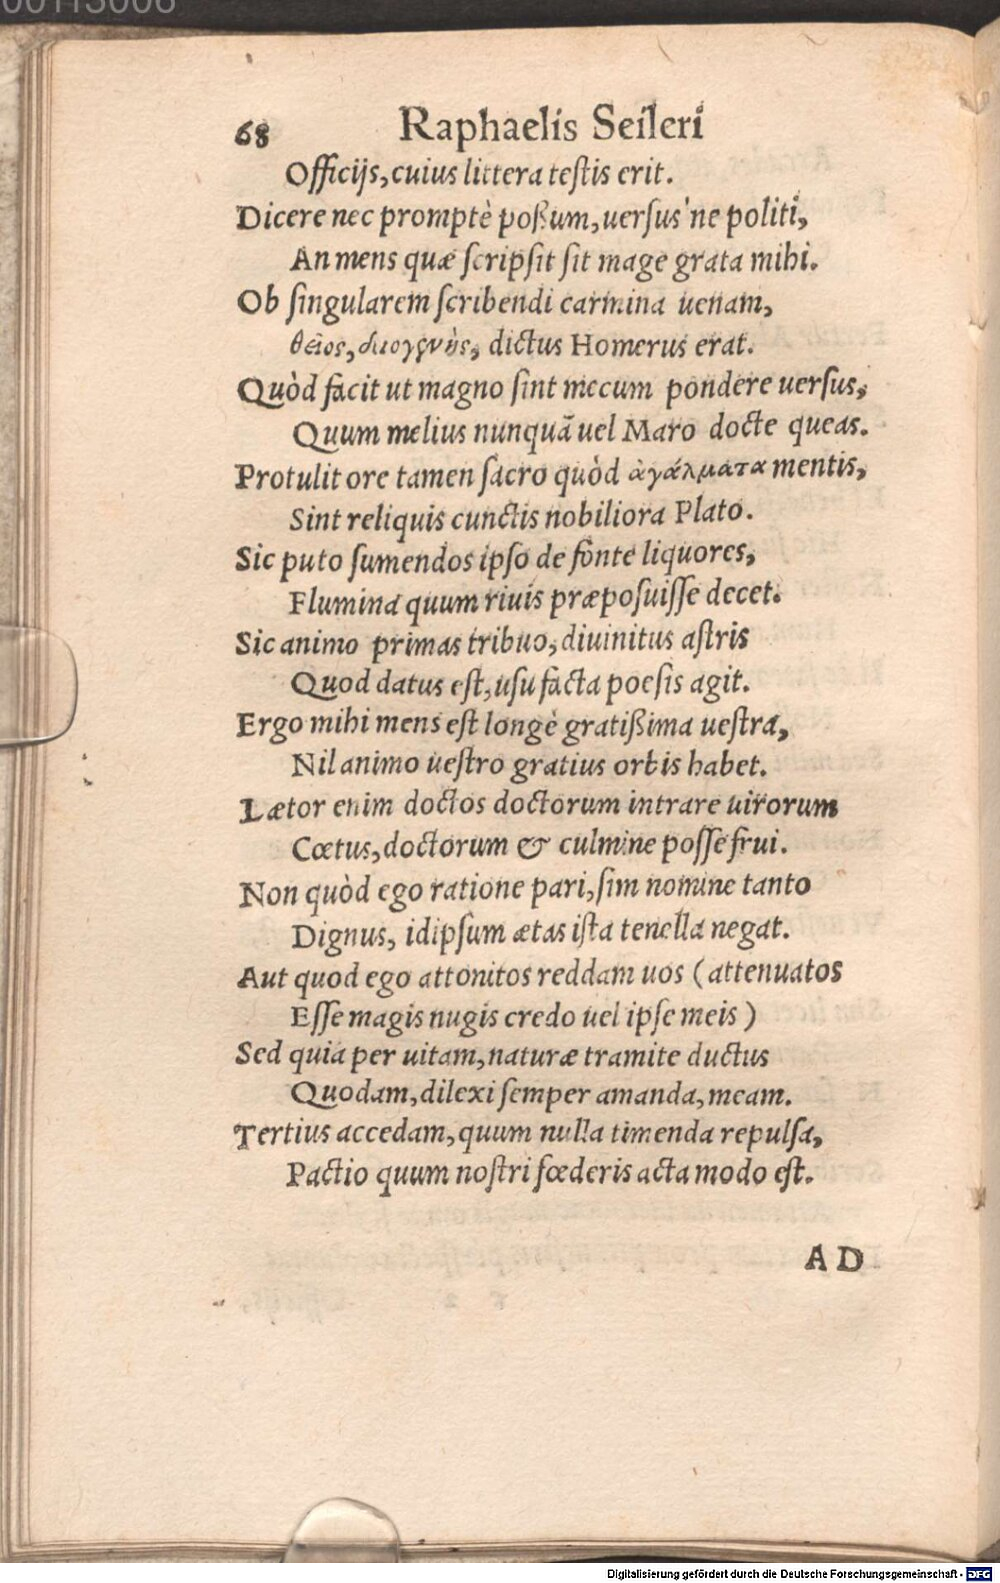 00113006
68 Raphaelis Seileri
Officijs, cuius littera testis erit.
Dicere nec promptè poßum, uersus'ne politi,
An mens quæ scripsit sit mage grata mihi.
Ob singularem scribendi carmina uenam,
θεῖος, διογενὴς, dictus Homerus erat.
Quòd facit ut magno sint mecum pondere uersus,
Quum melius nunquā uel Maro docte queas.
Protulit ore tamen sacro quòd ἀγάλματα mentis,
Sint reliquis cunctis nobiliora Plato.
Sic puto sumendos ipso de fonte liquores,
Flumina quum riuis præposuisse decet.
Sic animo primas tribuo, diuinitus astris
Quod datus est, usu facta poesis agit.
Ergo mihi mens est longè gratißima uestra,
Nil animo uestro gratius orbis habet.
Lætor enim doctos doctorum intrare uirorum
Cœtus, doctorum & culmine posse frui.
Non quòd ego ratione pari, sim nomine tanto
Dignus, idipsum ætas ista tenella negat.
Aut quod ego attonitos reddam uos (attenuatos
Esse magis nugis credo uel ipse meis)
Sed quia per uitam, naturæ tramite ductus
Quodam, dilexi semper amanda, meam.
Tertius accedam, quum nulla timenda repulsa,
Pactio quum nostri fœderis acta modo est.
AD
Digitalisierung gefördert durch die Deutsche Forschungsgemeinschaft - DFG